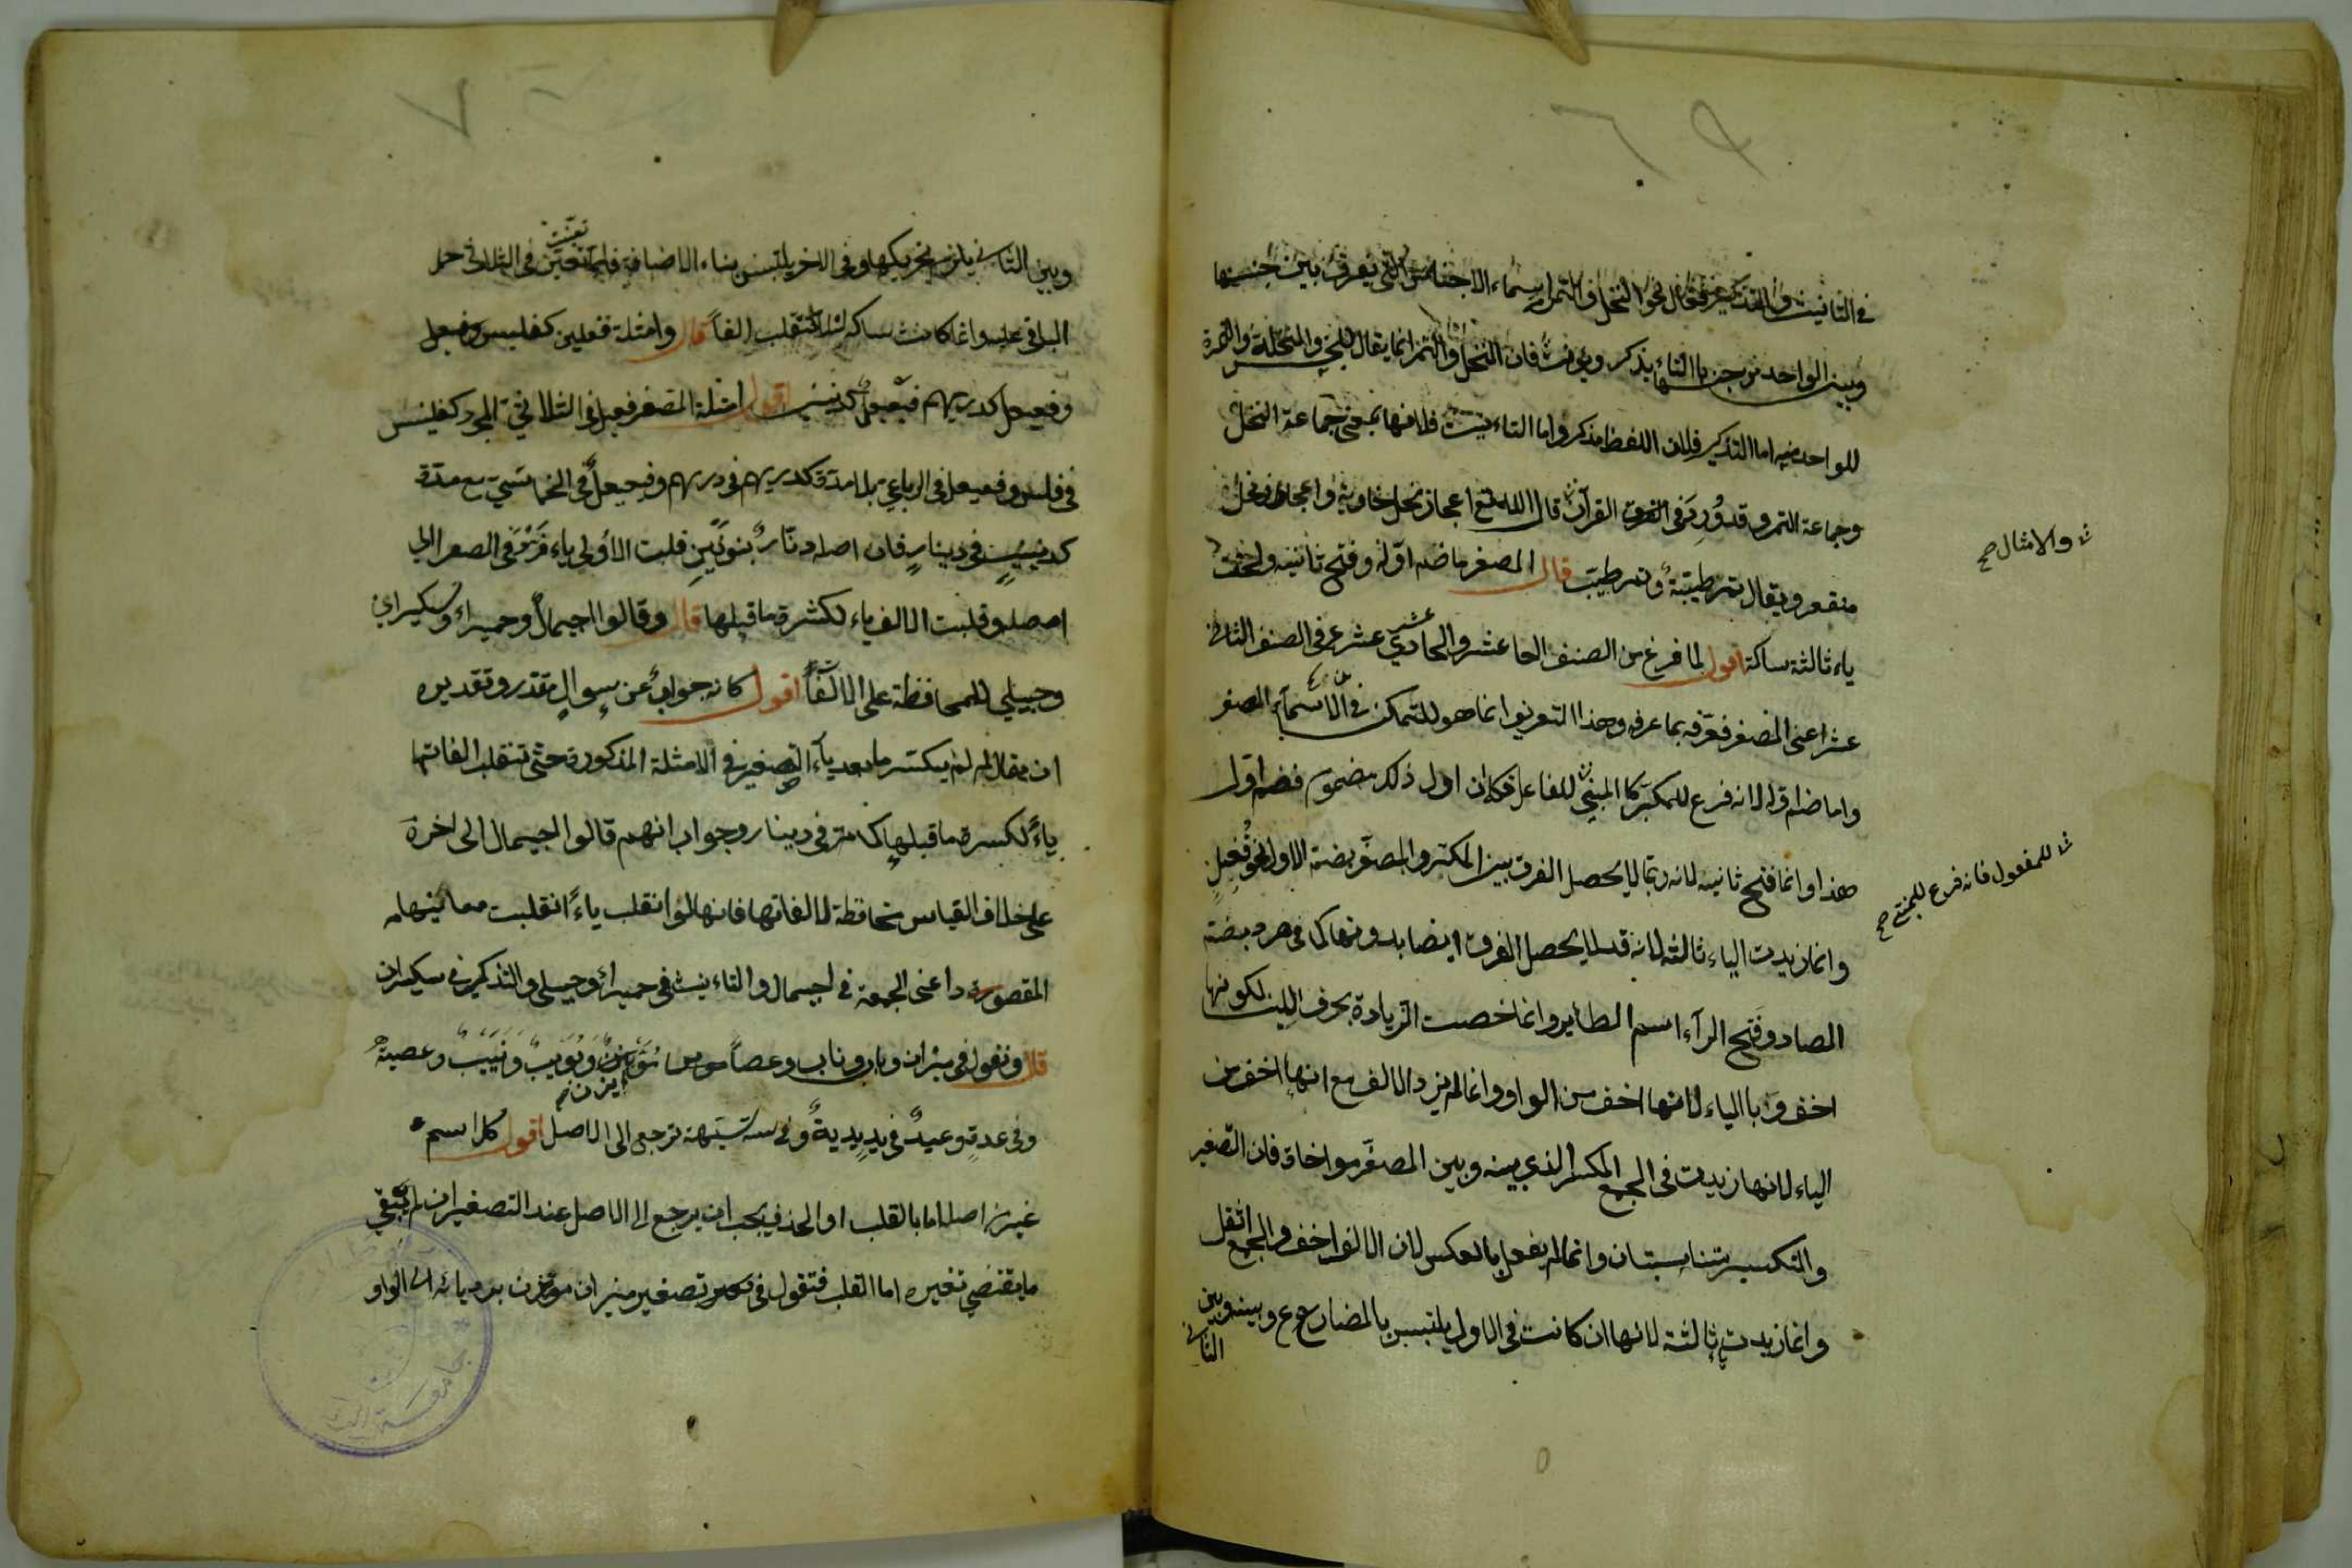 في التانيث والتذكير فقال نحو النخل والتمر اسماء الاجناس التي يفرق بين جنسها
وبين الواحد من جنسها بالتاء يذكر ويؤنث فان النخل والتمر انما يقال للجنس والنخلة والتمرة
للواحد منه اما التذكير فلان اللفظ مذكر واما التاءنيث فلانها بمعنى جماعة النخل
وجماعة التمر وقد ورد في القرآن قال الله تع اعجاز نخل خاوية واعجاز نخل
منقعر ويقال تمر طيبة وتمر طيب قال المصغر ما ضم اوله وفتح ثانيه ولحقت
ياء ثالثة ساكنة اقول لما فرغ من الصنف الحادي عشر شرع في الصنف الثاني
عشر اعني المصغر فعرفه بما عرفه وهذا التعريف انما هو للمتمكن في الاسماء المصغر
والامثال صح
واما ضم اوله لانه فرع للمكبر كما المبني للفاعل فكان اول ذلك مضموم فضم اول
للمفعول فانه فرع للمبني صح
هذا وانما فتح ثانيه لانه ربما لا يحصل الفرق بين المكبر والمصغر بضمة الاول نحو فعل
وانما زيدت الياء ثالثة لانه قد لا يحصل الفرق ايضا بدونها كما في صرد بضم
الصاد وفتح الرآء اسم الطاير وانما خصت الزيادة بحرف اللين لكونها
اخف وبالياء لانها اخف من الواو وانما لم يزد الالف مع انها اخف من
الياء لانها زيدت في الجمع المكسر الذي بينه وبين المصغر مواخاة فان التصغير
والتكسير متناسبتان وانما لم يفعل بالعكس لان الالف اخف والجمع اثقل
وانما زيدت ثالثة لانها ان كانت في الاول يلتبس بالمضارع وبينه وبين
الثاني
وبين الثاني يلزم تحريكها وفي الاخر يلتبس بياء الاضافة فلما تعينت في الثلاثي حمل
الباقي عليه وانما كانت ساكنة لئلا تنقلب الفاً قال وامثلة فعيل كفليس وفعيعل
وفعيعل كدريهم فعيعيل كدنينير اقول امثلة المصغر فعيل في الثلاثي المجرد كفليس
في فلس وفعيعل في الرباعي بلا مدة كدريهم في درهم وفعيعيل في الخماسي مع مدة
كدنينير في دينار فان اصله دنار بنونين قلبت الاولي ياء فرد في الصغر الي
اصله وقلبت الالف ياء لكسرة ما قبلها قال وقالوا اجيمال وحميراء وسكيران
وحبيلي للمحافظة علي الالف اقول كانه جواب عن سوال مقدر وتقديره
ان يقال لم لم يكسر ما بعد ياء التصغير في الامثلة المذكورة حتى تنقلب الفاتها
ياءً لكسرة ما قبلها كما مر في دينار وجواب انهم قالوا اجيمال الى اخره
على خلاف القياس محافظة لالفاتها فانها لو انقلب ياءً انقلبت معانيها
المقصودة اعني الجمعية في اجيمال والتاءنيث في حميراء وحبيلي والتذكير في سكيران
قال وتقول في ميزان وباب وناب وعصاً موسى مويزن وبويب ونييب وعصية
وفي عدة وعيد في يد يدية وفي سه ستيهة ترجع الى الاصل اقول كل اسم
غير من اصله اما بالقلب او الحذف يجب ان يرجع الى الاصل عند التصغير ان لم يبقي
ما يقتضي تغيره اما القلب فتقول في تصغير ميزان مويزن برد يائه الى الواو